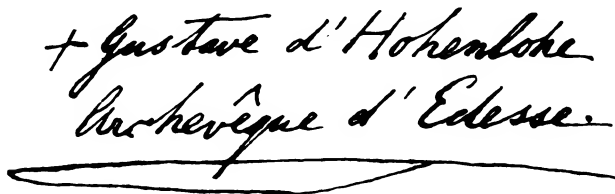 + Gustave d'Hohenlohe
Archevêque d'Edesse.